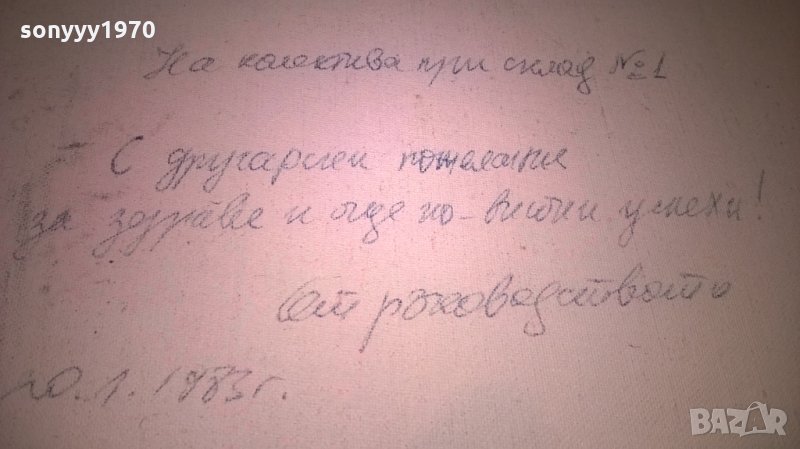 sonyyy1970
На колектива при склад №1
С другарски пожелания
за здраве и още по-високи успехи!
От ръководството
20.1.1983г.
BAZAR